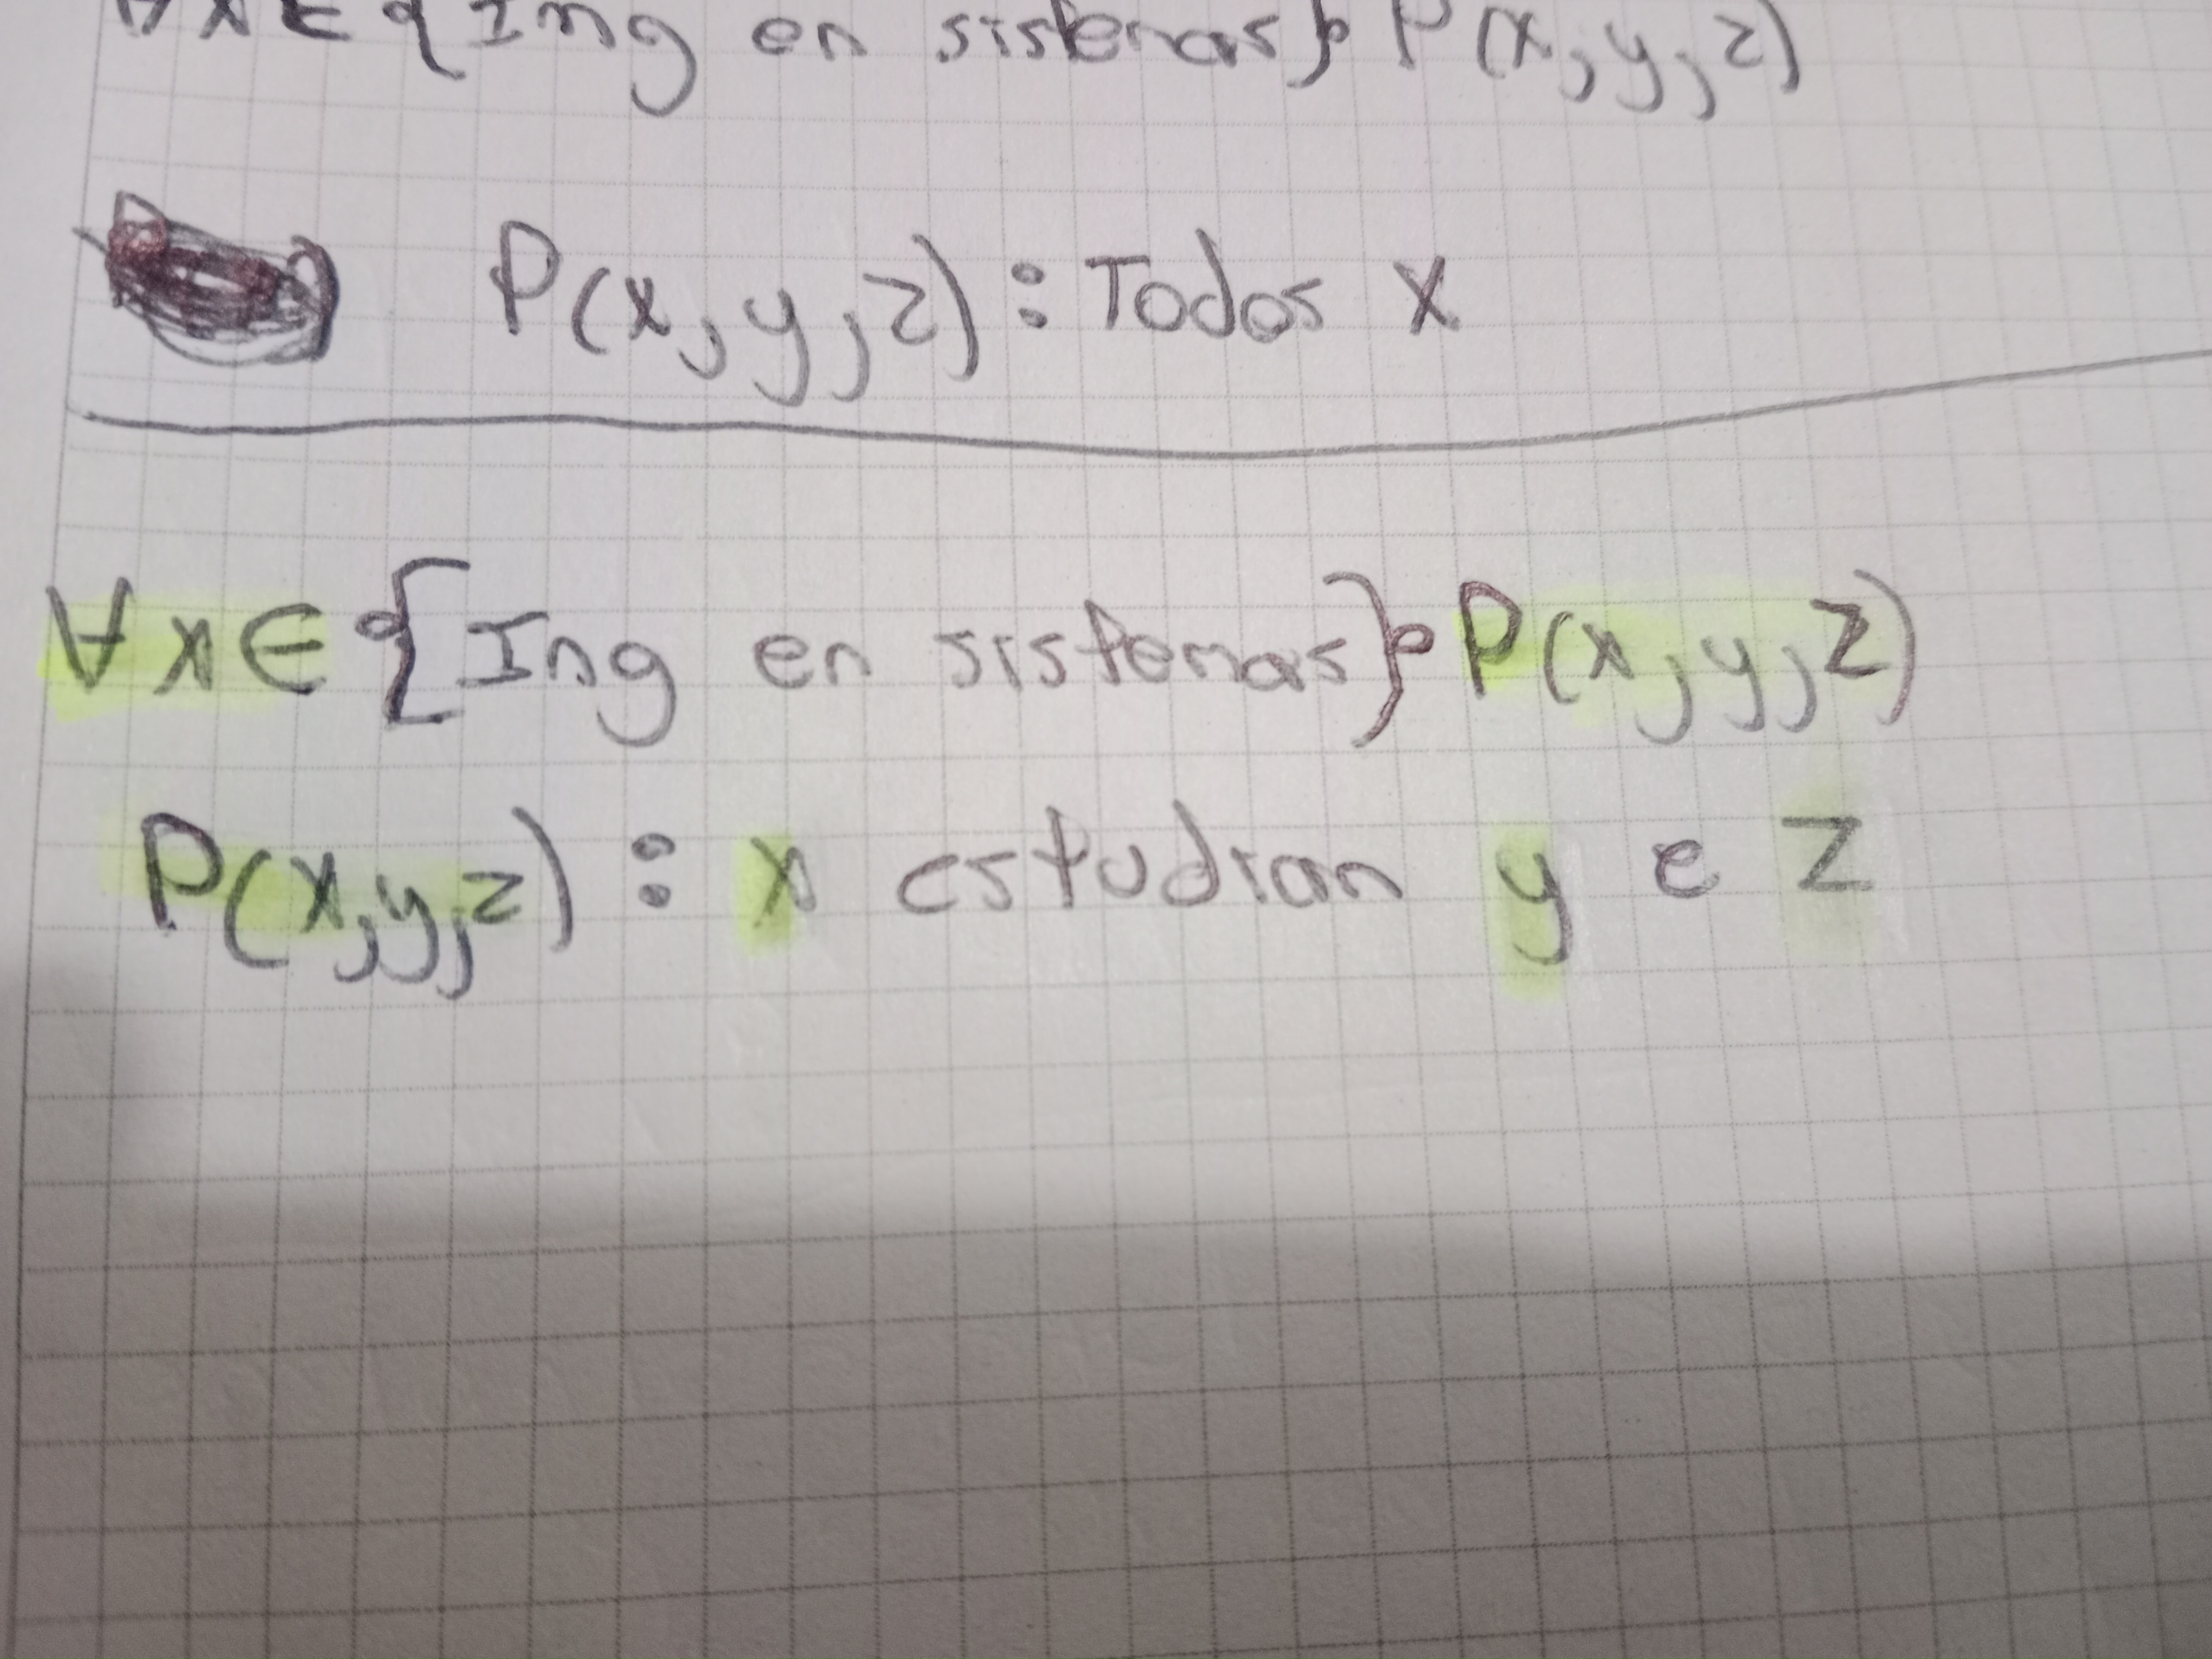 ∀x∈{Ing en sistemas} P(x,y,z)
P(x,y,z):Todos x
∀x∈{Ing en sistemas} P(x,y,z)
P(x,y,z): x estudian y e z